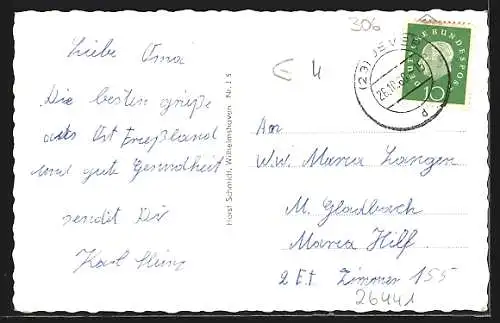 306
Liebe Oma
Die besten grüße
aus Ost Frießland
und gute Gesundheit
sendet Dir
Karl Heinz
Horst Schmidt, Wilhelmshaven Nr. J 5
4
(23) JEV
26.10.60
DEUTSCHE BUNDESPOST
10
An
Ww. Maria Langen
M. Gladbach
Maria Hilf
2 Et. Zimmer 155
26441